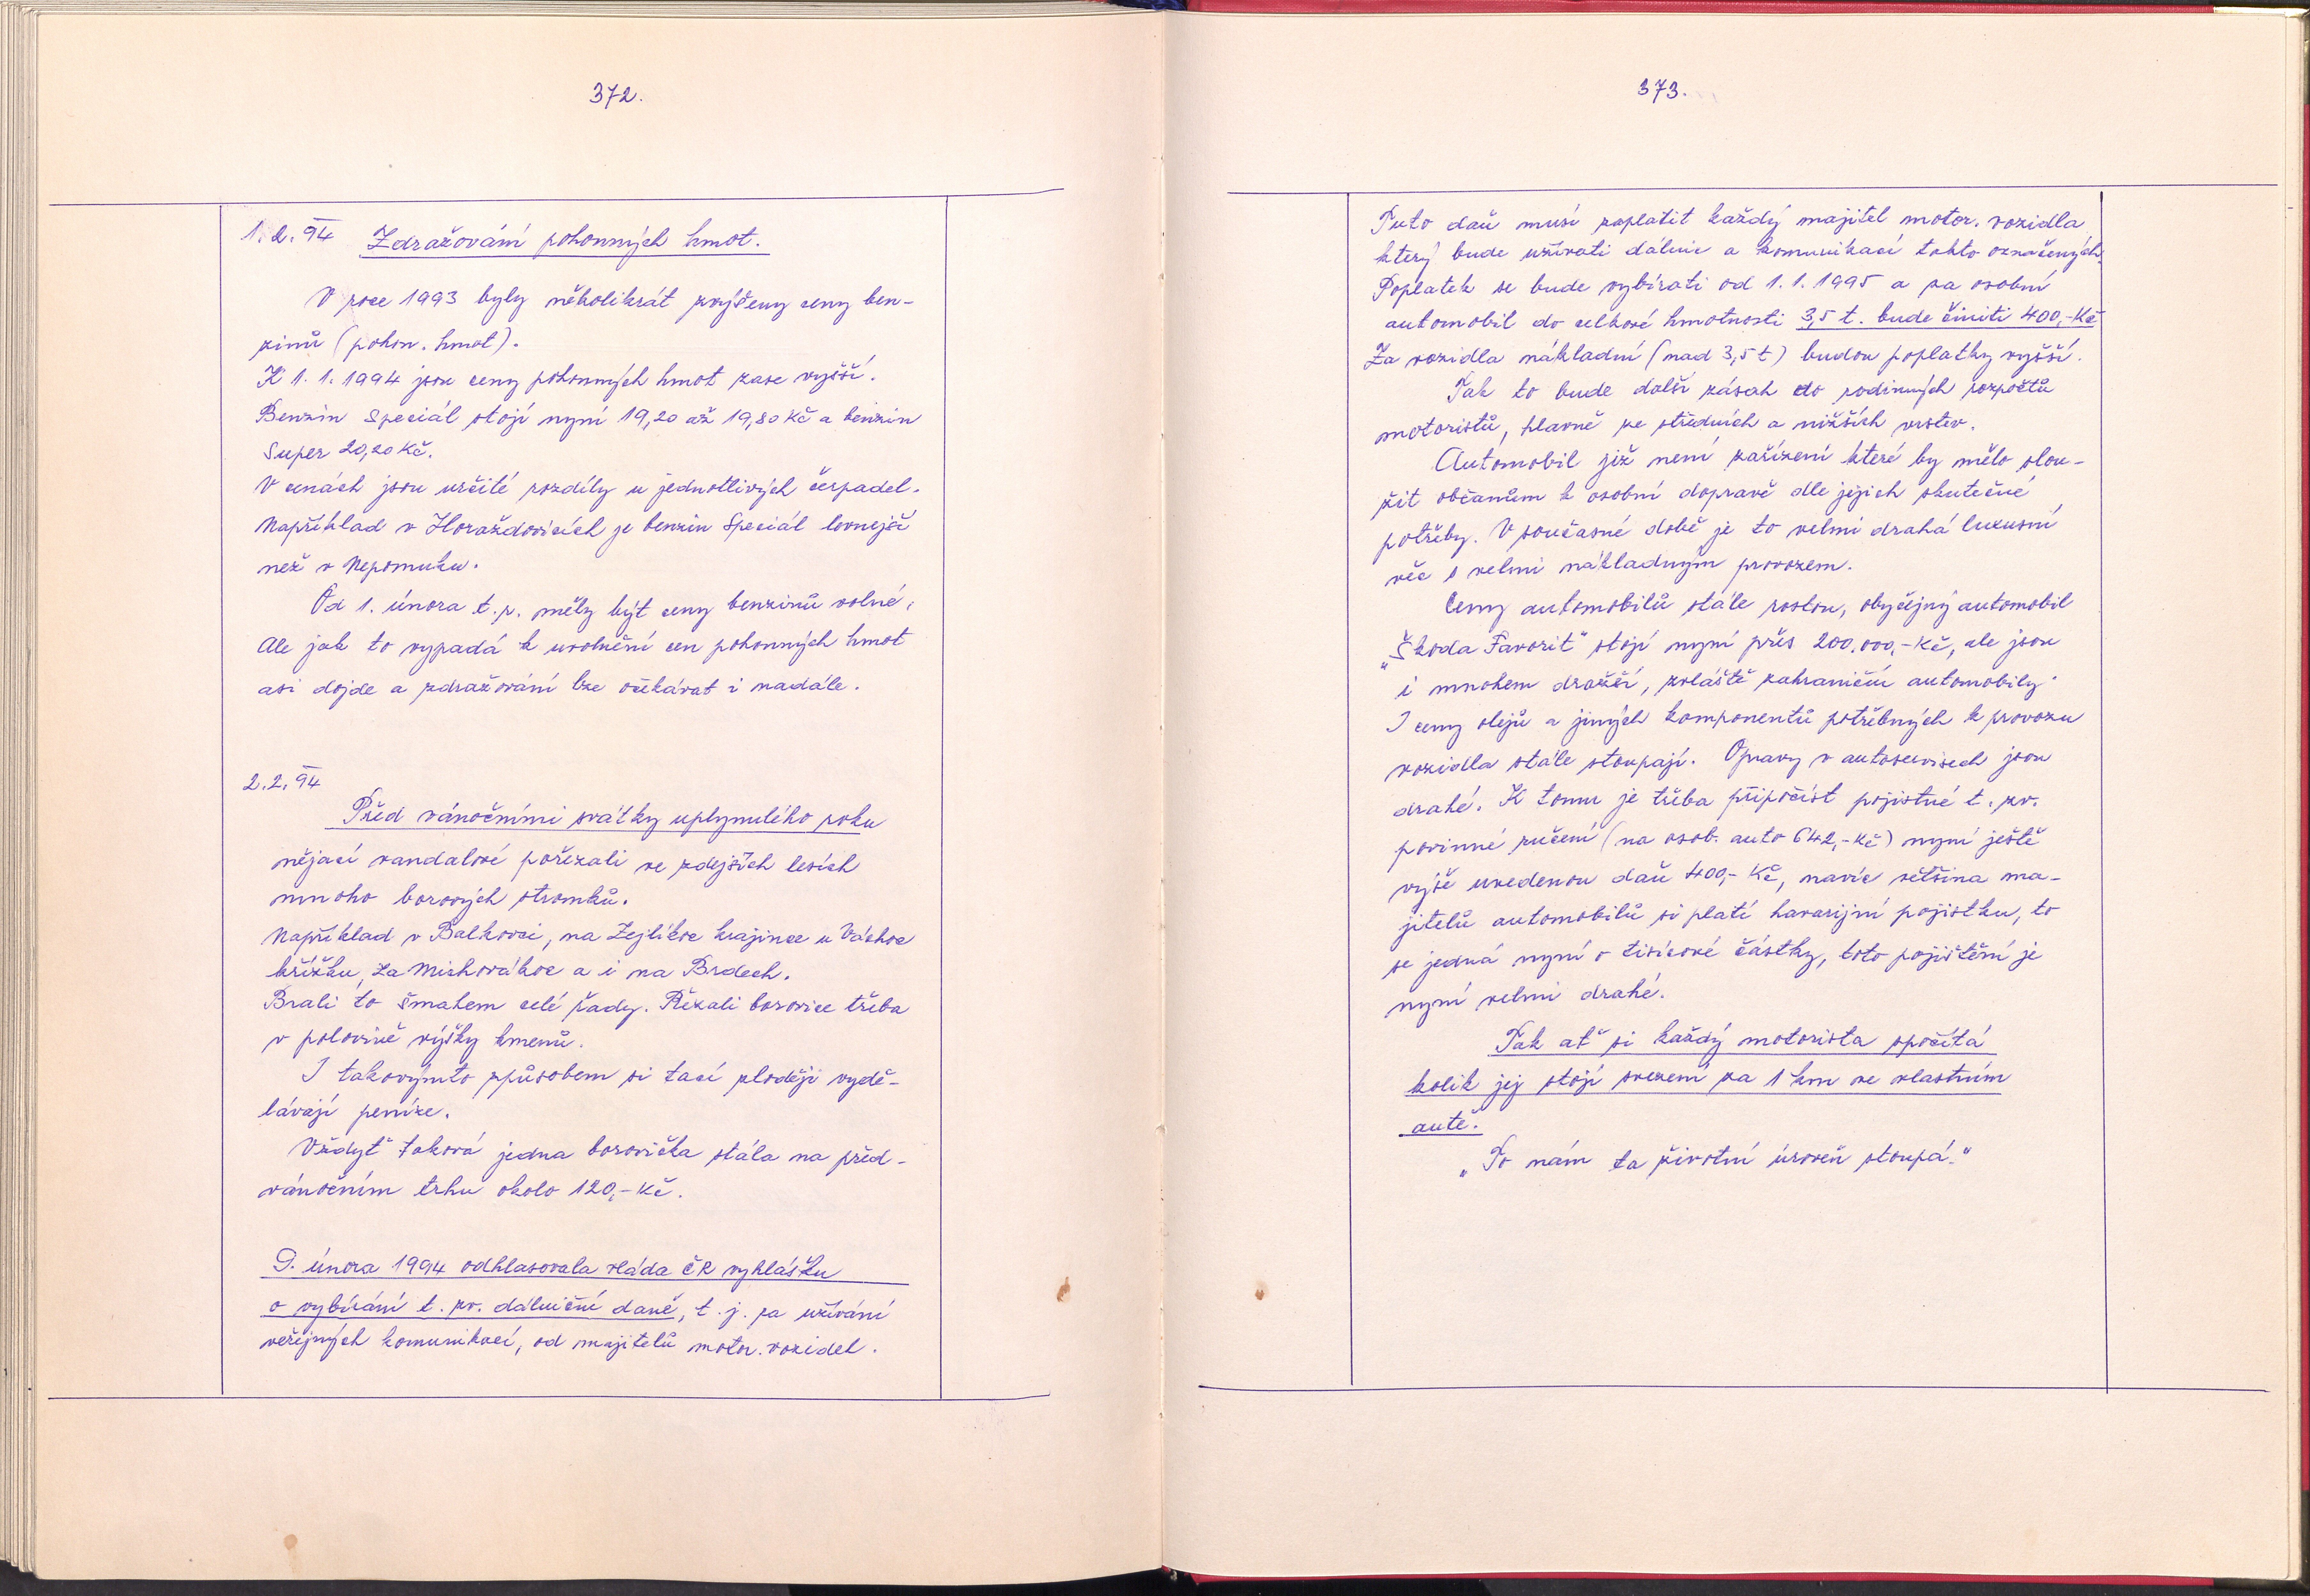 372.
1.2.94 Zdražování pohonných hmot.
V roce 1993 byly několikrát zvýšeny ceny ben-
zinů (pohon. hmot).
K 1.1.1994 jsou ceny pohonných hmot zase vyšší.
Benzin Speciál stojí nyní 19,20 až 19,80 Kč a benzin
Super 20,20 Kč.
V cenách jsou určité rozdíly u jednotlivých čerpadel.
Například v Horažďovicích je benzin Speciál levnější
než v Nepomuku.
Od 1. února t.r. měly být ceny benzinů volné,
Ale jak to vypadá k uvolnění cen pohonných hmot
asi dojde a zdražování lze očekávat i nadále.
2.2.94
Před vánočními svátky uplynulého roku
nějací vandalové pořezali ve zdejších lesích
mnoho borových stromků.
Například v Balkovci, na Zejlíkoc krajince u Váchoc
křížku, za Michovákoc a i na Brdech.
Brali to šmahem celé řady. Řezali borovice třeba
v polovině výšky kmenů.
I takovýmto způsobem si tací zloději vydě-
lávají peníze.
Vždyť taková jedna borovička stála na před-
vánočním trhu okolo 120,-Kč.
9. února 1994 odhlasovala vláda ČR vyhlášku
o vybírání t. zv. dálniční daně, t. j. za užívání
veřejných komunikací, od majitelů motor. vozidel.
373.
Tuto daň musí zaplatit každý majitel motor. vozidla
který bude užívati dálnic a komunikací takto označených.
Poplatek se bude vybírati od 1.1.1995 a za osobní
automobil do celkové hmotnosti 3,5 t. bude činiti 400,-Kč
Za vozidla nákladní (nad 3,5 t) budou poplatky vyšší.
Tak to bude další zásah do rodinných rozpočtů
motoristů, hlavně ze středních a nižších vrstev.
Automobil již není zařízení které by mělo slou-
žit občanům k osobní dopravě dle jejich skutečné
potřeby. V současné době je to velmi drahá luxusní
věc s velmi nákladným provozem.
Ceny automobilů stále rostou, obyčejný automobil
„Škoda Favorit" stojí nyní přes 200.000,-Kč, ale jsou
i mnohem dražší, zvláště zahraniční automobily.
I ceny olejů a jiných komponentů potřebných k provozu
vozidla stále stoupají. Opravy v autoservisech jsou
drahé. K tomu je třeba připočíst pojistné t. zv.
povinné ručení (na osob. auto 642,-Kč) nyní ještě
výše uvedenou daň 400,- Kč, navíc většina ma-
jitelů automobilů si platí havarijní pojistku, to
se jedná nyní o tisícové částky, toto pojištění je
nyní velmi drahé.
Tak ať si každý motorista spočítá
kolik jej stojí svezení za 1 km ve vlastním
autě.
„To nám ta životní úroveň stoupá."